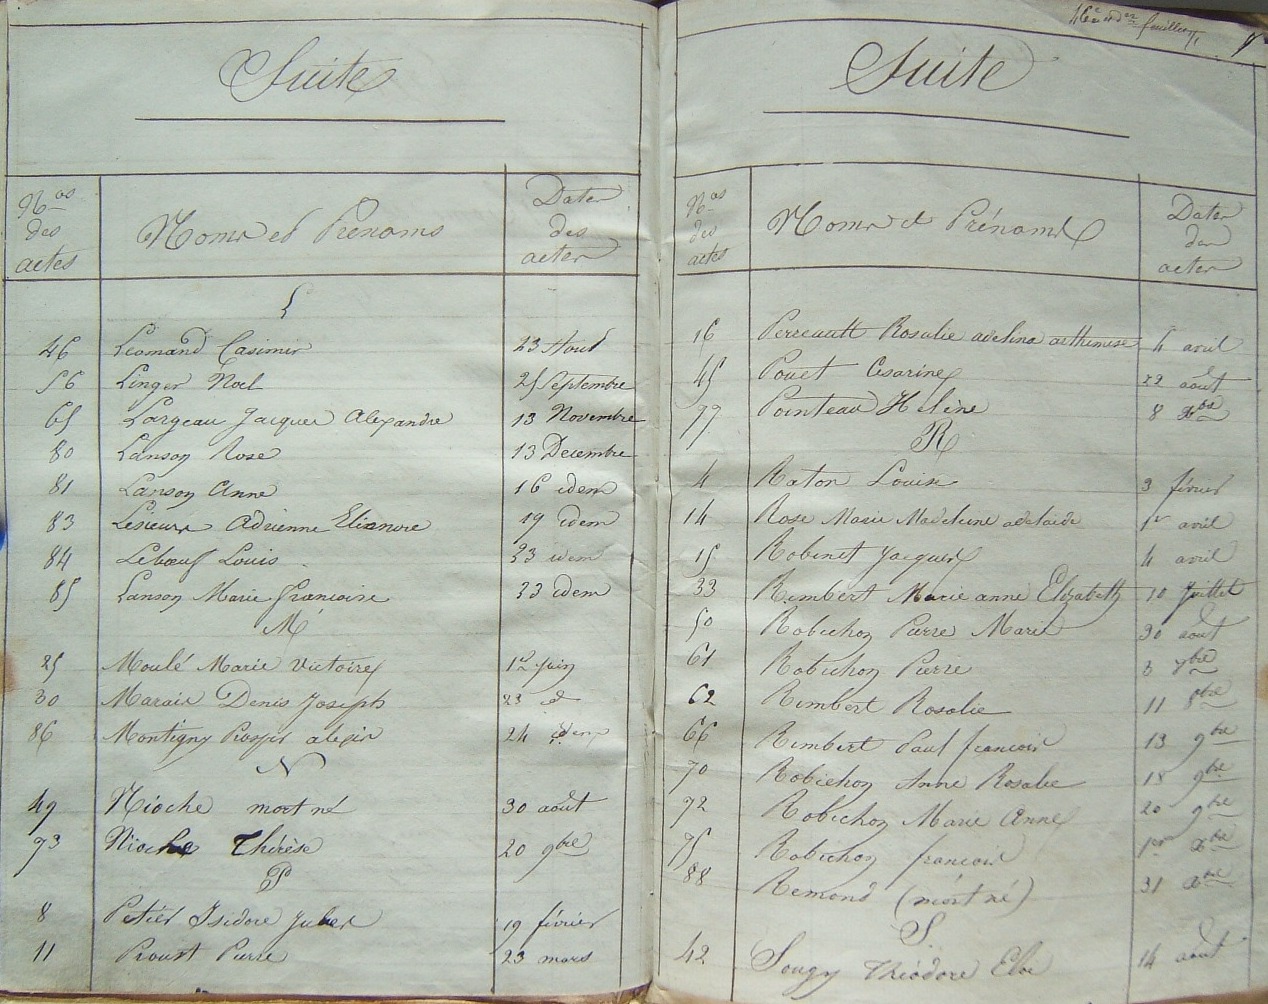 Suite
Nos des actes
Noms et Prénoms
Dates des actes
L
46 Léomand Casimir 23 Août
56 Linger Noel 25 Septembre
65 Largeau Jacques Alexandre 13 Novembre
80 Lanson Rose 13 Decembre
81 Lanson Anne 16 idem
83 Lesieurs Adrienne Elianore 19 idem
84 Leboeuf Louis 23 idem
85 Lanson Marie francoise 23 idem
M
25 Moulé Marie Victoire 1er juin
30 Marais Denis Joseph 23 d
86 Montigny Prosper alexis 24 idem
N
49 Nioche mort né 30 août
73 Nioche Thérèse 20 9bre
P
8 Petiet Isidore Jules 19 février
11 Proust Pierre 23 mars
46e et der feuillet
Suite
Nos des actes
Noms et Prénoms
Dates des actes
16 Perreault Rosalie adelina arthemise 4 avril
45 Pouet Cesarine 22 août
77 Pointeau Helène 8 xbre
R
4 Raton Louis 3 février
14 Rose Marie Madeleine adelaide 1er avril
15 Robinet Jacques 4 avril
33 Rimbert Marie anne Elizabeth 10 Juillet
50 Robichon Pierre Marie 30 août
61 Robichon Pierre 3 7bre
62 Rimbert Rosalie 11 8bre
66 Rimbert Paul francois 13 9bre
70 Robichon Anne Rosalie 18 9bre
72 Robichon Marie Anne 20 9bre
75 Robichon francois 1er xbre
88 Remond (mort né) 31 xbre
S.
42 Sougy Théodore Eloi 14 août